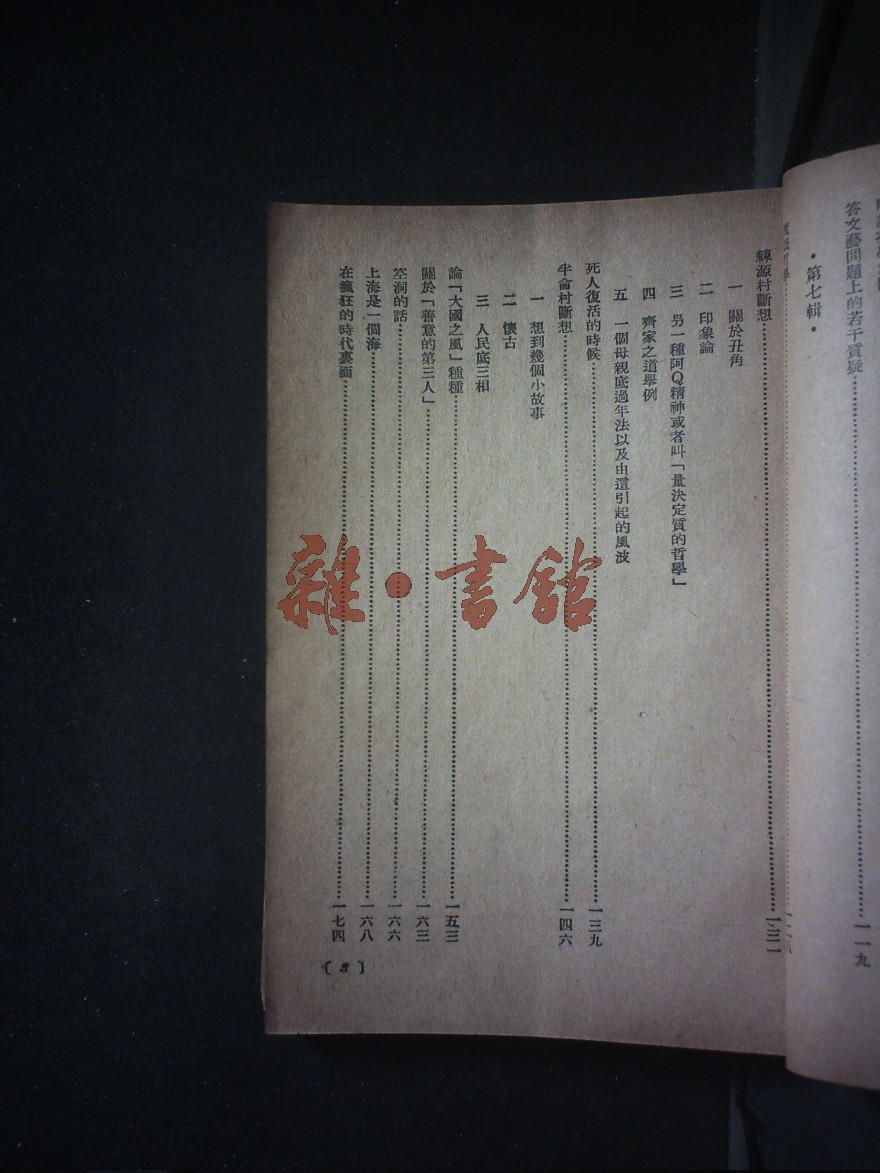 答文藝問題上的若干質疑……一一九
•第七輯•
棘源村斷想……一三一
一 關於丑角
二 印象論
三 另一種阿Q精神或者叫「量決定質的哲學」
四 齊家之道舉例
五 一個母親底過年法以及由這引起的風波
死人復活的時候……一三九
半侖村斷想……一四六
一 想到幾個小故事
二 懷古
三 人民底三相
論「大國之風」種種……一五三
關於「善意的第三人」……一六三
空洞的話……一六六
上海是一個海……一六八
在瘋狂的時代裏面……一七四
〔3〕
雜·書館